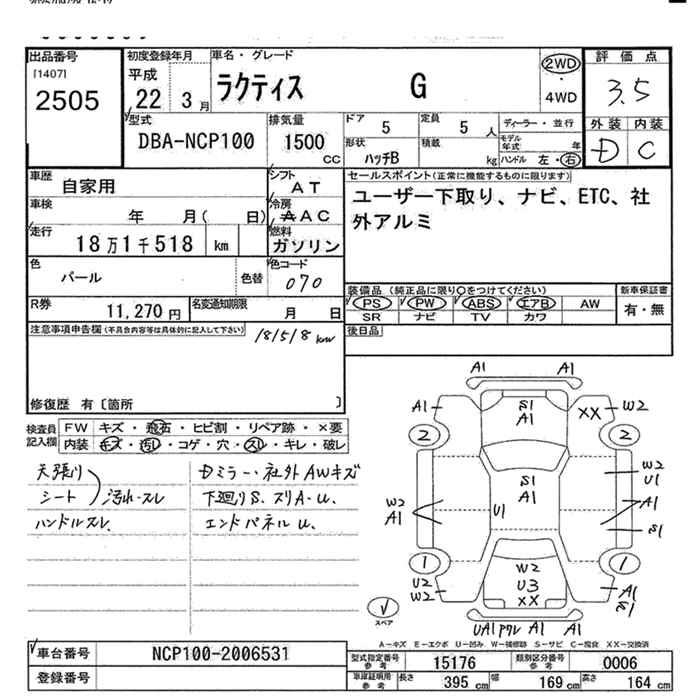 出品番号
[1407]
2505
初度登録年月
平成
22 3月
車名・グレード
ラクティス G
2WD
・
4WD
評価点
3.5
外装 内装
D C
型式
DBA-NCP100
排気量
1500
CC
ドア 5
定員 5人
形状 ハッチB
積載 kg
ディーラー・並行
モデル年式 年
ハンドル 左・右
車歴 自家用
シフト AT
車検 年 月( 日)
冷房 AAC
走行 18万1千518 km
燃料 ガソリン
色 パール 色替
色コード 070
R券 11,270円
名変通知期限 月 日
セールスポイント(正常に機能するものに限ります)
ユーザー下取り、ナビ、ETC、社
外アルミ
装備品(純正品に限り○をつけてください)
PS PW ABS エアB AW
SR ナビ TV カワ
新車保証書
有・無
後日品
注意事項申告欄(不具合内容等は具体的に記入して下さい)
181518km
修復歴 有〔箇所 〕
検査員
記入欄
FW キズ・飛石・ヒビ割・リペア跡・×要
内装 キズ・汚れ・コゲ・穴・スレ・キレ・破レ
天張り
シート 汚れ・スレ
ハンドルスレ
Dミラー・社外AWキズ
下廻りS.スリA-U.
エンドパネルU.
A1 A1
A1 S1 A1 XX W2
2 2
S1
A1
W2
U1
U1
W2
A1
A1
S1
1 1
W2
U3
XX
U2
W2
A1
S1
UA1 A1 A1
スペア
A-キズ E-エクボ U-凹み W-補修跡 S-サビ C-腐食 XX-交換済
車台番号 NCP100-2006531
登録番号
型式指定番号 参考 15176
類別区分番号 参考 0006
車庫証明用 参考 長さ 395 cm 幅 169 cm 高さ 164 cm